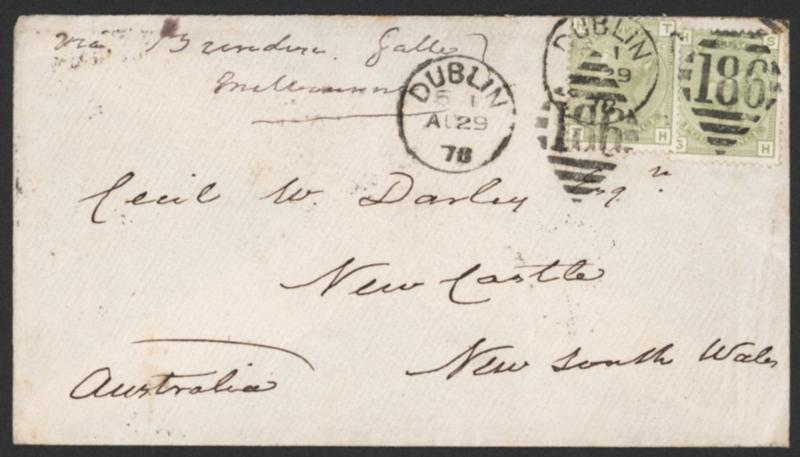 via Brindisi Galle
Melbourne
DUBLIN
AU 29
78
DUBLIN
29
186
186
T
H
S
H
Cecil W. Darley Esqr
New Castle
New South Wales
Australia